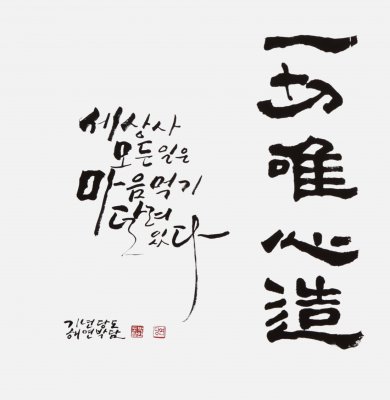 一切唯心造
세상사
모든 일은
마음먹기
달려
있다
기해년 연당 박도담